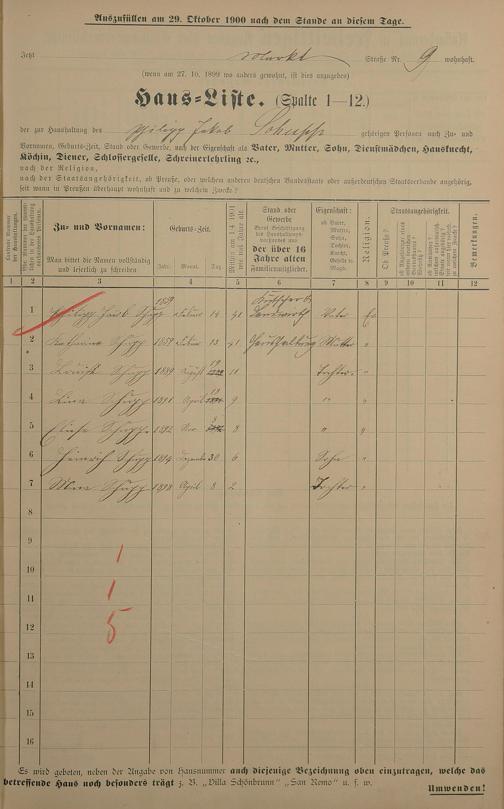 Auszufüllen am 29. Oktober 1900 nach dem Stande an diesem Tage.
Jetzt Markt Straße Nr. 9 wohnhaft.
(wenn am 27. 10. 1899 wo anders gewohnt, ist dies anzugeben)
Haus-Liste. (Spalte 1—12.)
der zur Haushaltung des Philipp Jakob Schupp gehörigen Personen nach Zu- und
Vornamen, Geburts-Zeit, Stand oder Gewerbe, nach der Eigenschaft als Vater, Mutter, Sohn, Dienstmädchen, Hausknecht,
Köchin, Diener, Schlossergeselle, Schreinerlehrling ec.,
nach der Religion,
nach der Staatsangehörigkeit, ob Preuße, oder welchen anderen deutschen Bundesstaate oder außerdeutschen Staatsverbande angehörig,
seit wann in Preußen überhaupt wohnhaft und zu welchem Zwecke?
Zu- und Vornamen:
Man bittet die Namen vollständig
und leserlich zu schreiben
Geburts-Zeit.
Jahr. Monat. Tag.
Mithin am 1/4 1901
wie viel Jahre alt
Stand oder
Gewerbe
der über 16
Jahre alten
Familienmitglieder.
Eigenschaft:
ob Vater,
Mutter,
Sohn,
Tochter,
Knecht,
Geselle u.
Magd.
Religion.
Staatsangehörigkeit.
Ob Preuße?
Bemerkungen.
1 2 3 4 5 6 7 8 9 10 11 12
1 Schupp 1859 14 41 Landwirth Vater Ev
2 Schupp 1859 13 41 Haushaltung Mutter "
3 Louise Schupp 1889 August 19 11 Tochter "
4 Lina Schupp 1891 April 9 " "
5 Schupp 1892 Nov 8 " "
6 Heinrich Schupp 1894 Dezember 30 6 Sohn "
7 Schupp 1898 April 8 2 Tochter "
8
9
10 1
11 1
12 5
13
14
15
16
Es wird gebeten, neben der Angabe von Hausnummer auch diejenige Bezeichnung oben einzutragen, welche das
betreffende Haus noch besonders trägt z. B. „Villa Schönbrunn" „San Remo" u. s. w.
Umwenden!